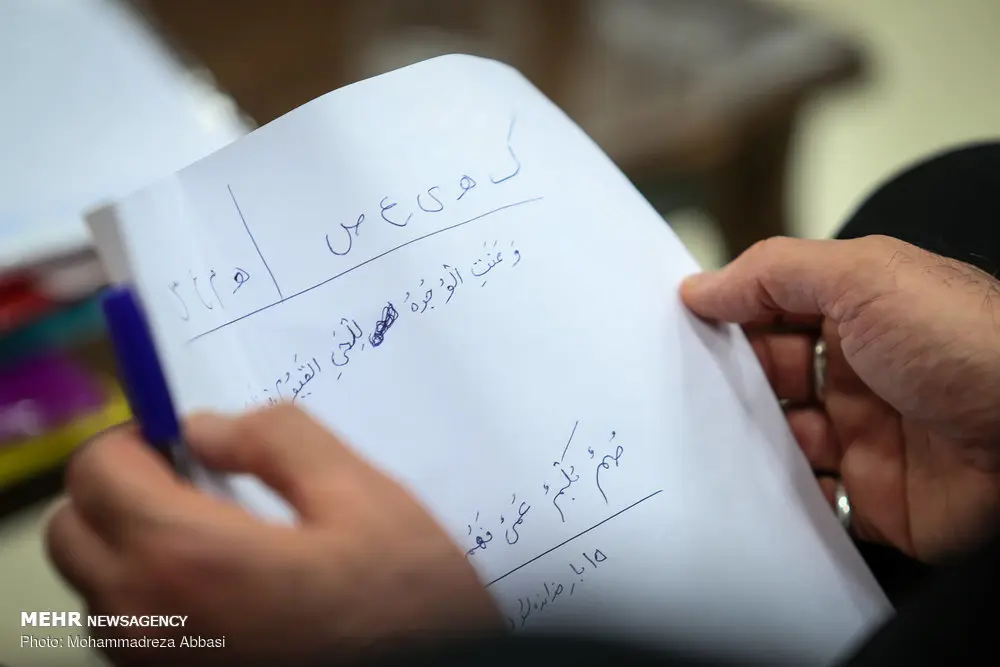 ک ه ی ع ص
وَ عَنَتِ الْوُجُوهُ لِلْحَيِّ الْقَيُّومِ
صُمٌّ بُكْمٌ عُمْيٌ فَهُمْ
۱۵ بار خوانده شود
MEHR NEWSAGENCY
Photo: Mohammadreza Abbasi